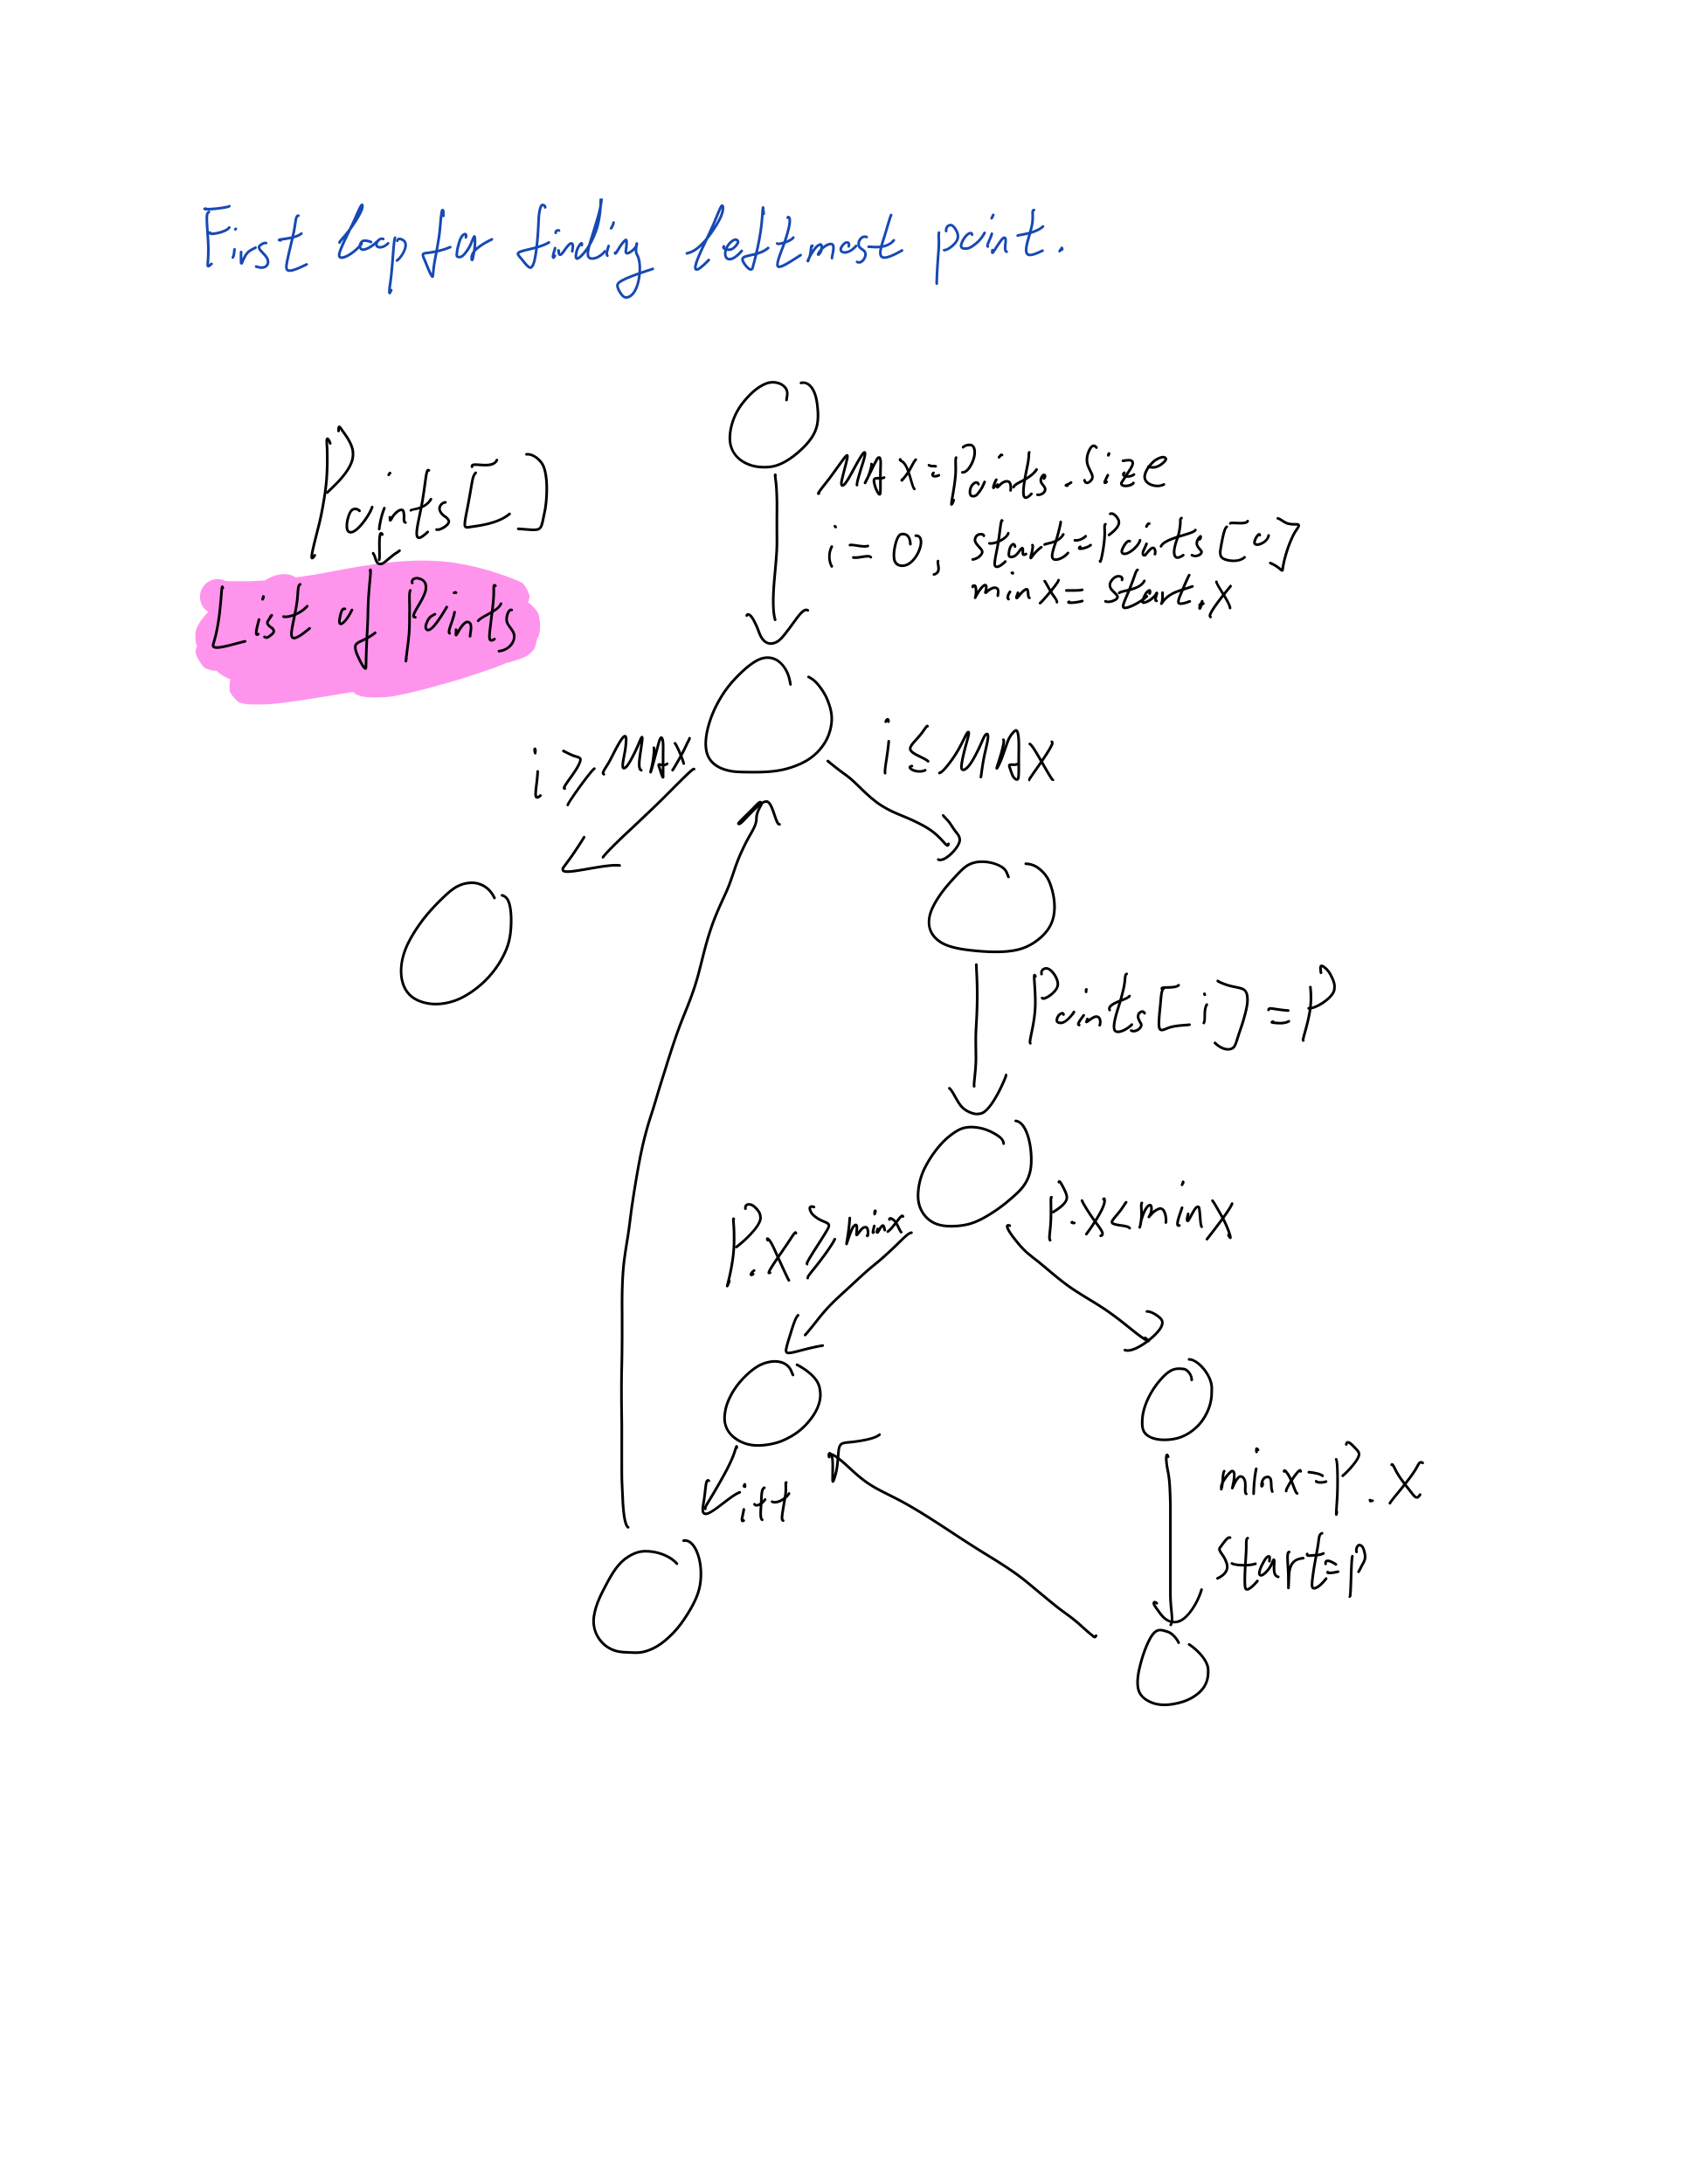 First loop for finding leftmost point.
Points[]
List of Points
MAX=Points.size
i=0, start=Points[0]
minx=start.x
i≥MAX
i≤MAX
Points[i]=P
P.x≥minx
P.x<minx
i++
minx=P.x
start=P